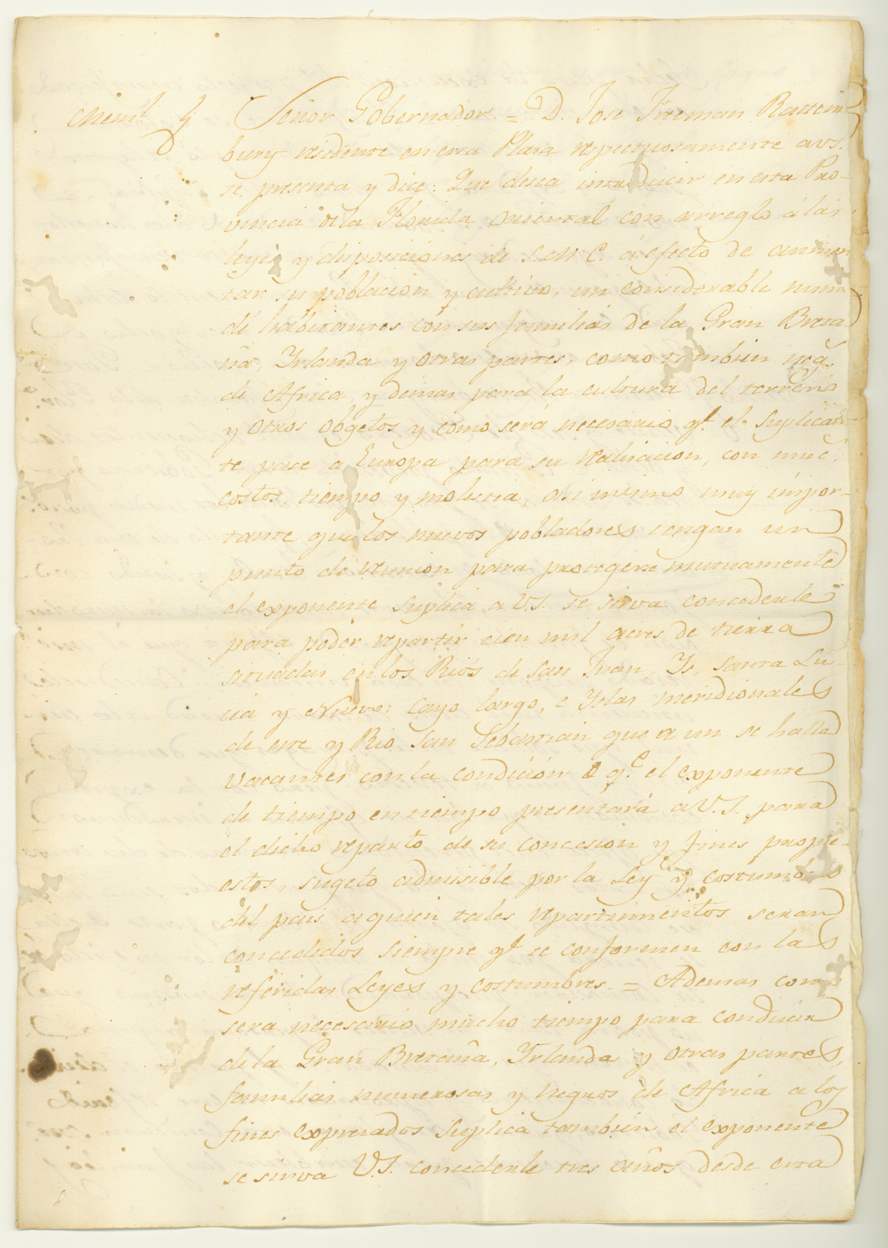 Memℓ.
Señor Gobernador = D. Jose Freeman Rattem-
bury residente en esta Plaza respetuosamente a V.S.
se presenta y dice: Que desea introducir en esta Pro-
vincia de la Florida oriental con arreglo á las
leyes y disposiciones de S.M.C. á efecto de aumen-
tar su poblacion y cultivo, un considerable num.
de habitantes con sus familias de la Gran Breta-
ña, Yrlanda y otras partes, como tambien neg.
de Africa, y demas para la cultura del terreno
y otros obgetos, y como será necesario qe. el Suplican-
te pase a Europa para su realizacion, con muc.
costos, tiempo y molestia, asi mismo muy impor-
tante que los nuevos pobladores tengan un
punto de reunion para protegerse mutuamente
el exponente Suplica a V.S. se sirva concederle
para poder repartir cien mil acres de tierra
situadas en los Rios de San Juan, Ys, Santa Lu-
cia y Nuevo: Cayo largo, e Yslas meridionales
de este y Rio San Sebastian que aun se halla
vacantes con la condición qe. el exponente
de tiempo en tiempo presentará a V.S. para
el dicho reparto de su concesion y fines propu-
estos, sugeto admisible por la Ley y costumbres
del pais a quien tales repartimientos seran
concedidos siempre qe. se conformen con las
referidas Leyes y costumbres. = Ademas como
será necesario mucho tiempo para conducir
de la Gran Bretaña, Yrlanda y otras partes,
familias numerosas y negros de Africa a los
fines expresados Suplica tambien el exponente
se sirva V.S. concederle tres años desde esta